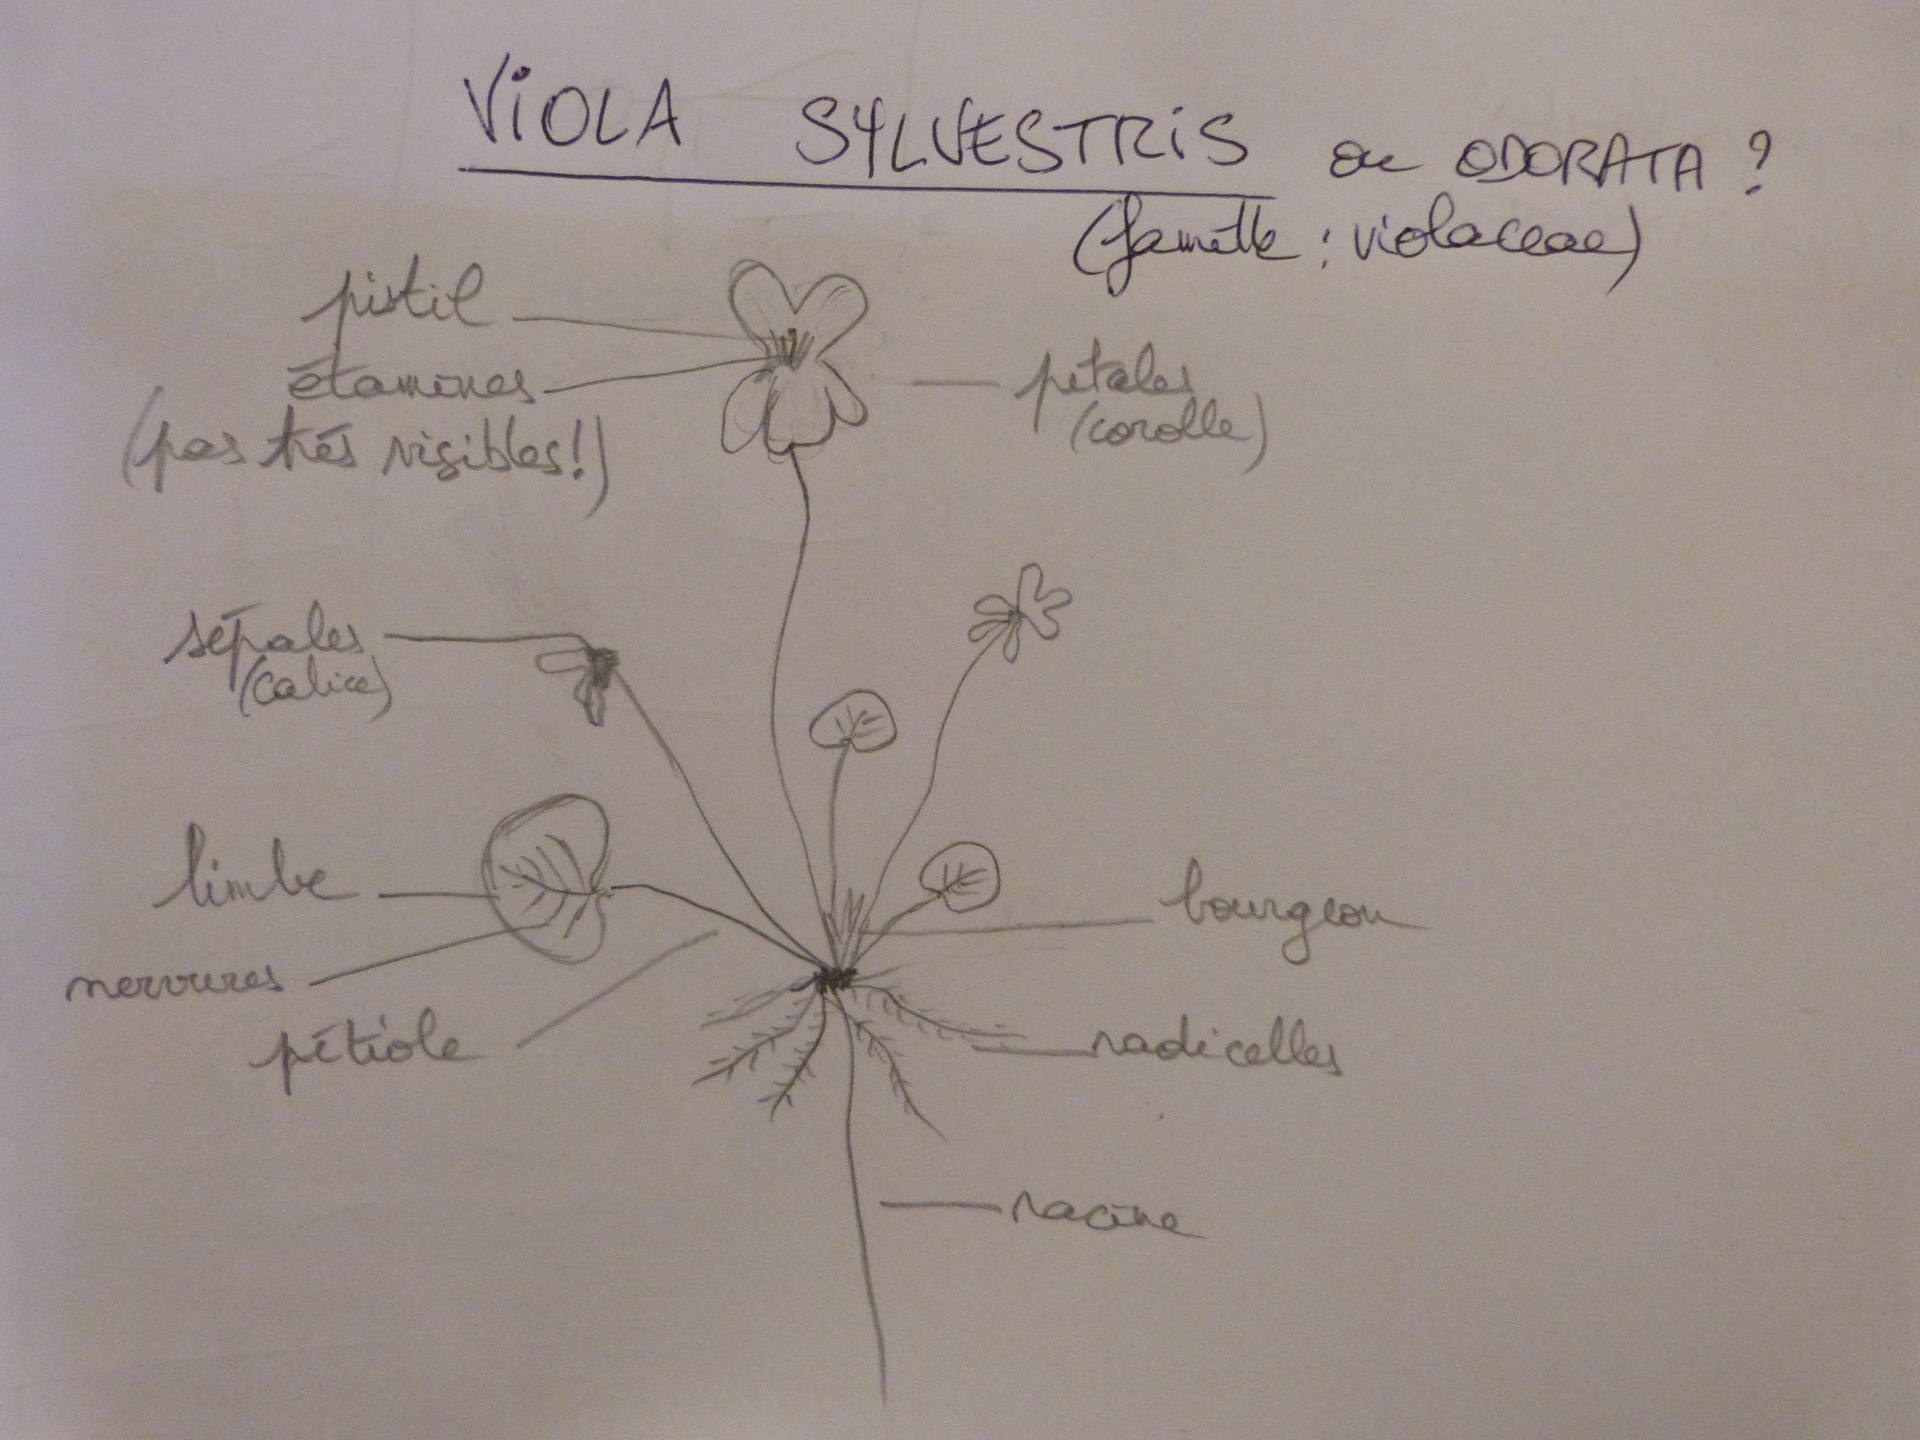 ViOLA SYLVESTRiS ou ODORATA ?
(famille : violaceae)
pistil
étamines
(pas très visibles!)
pétales
(corolle)
sépales
(calice)
limbe
nervures
pétiole
bourgeon
radicelles
racine